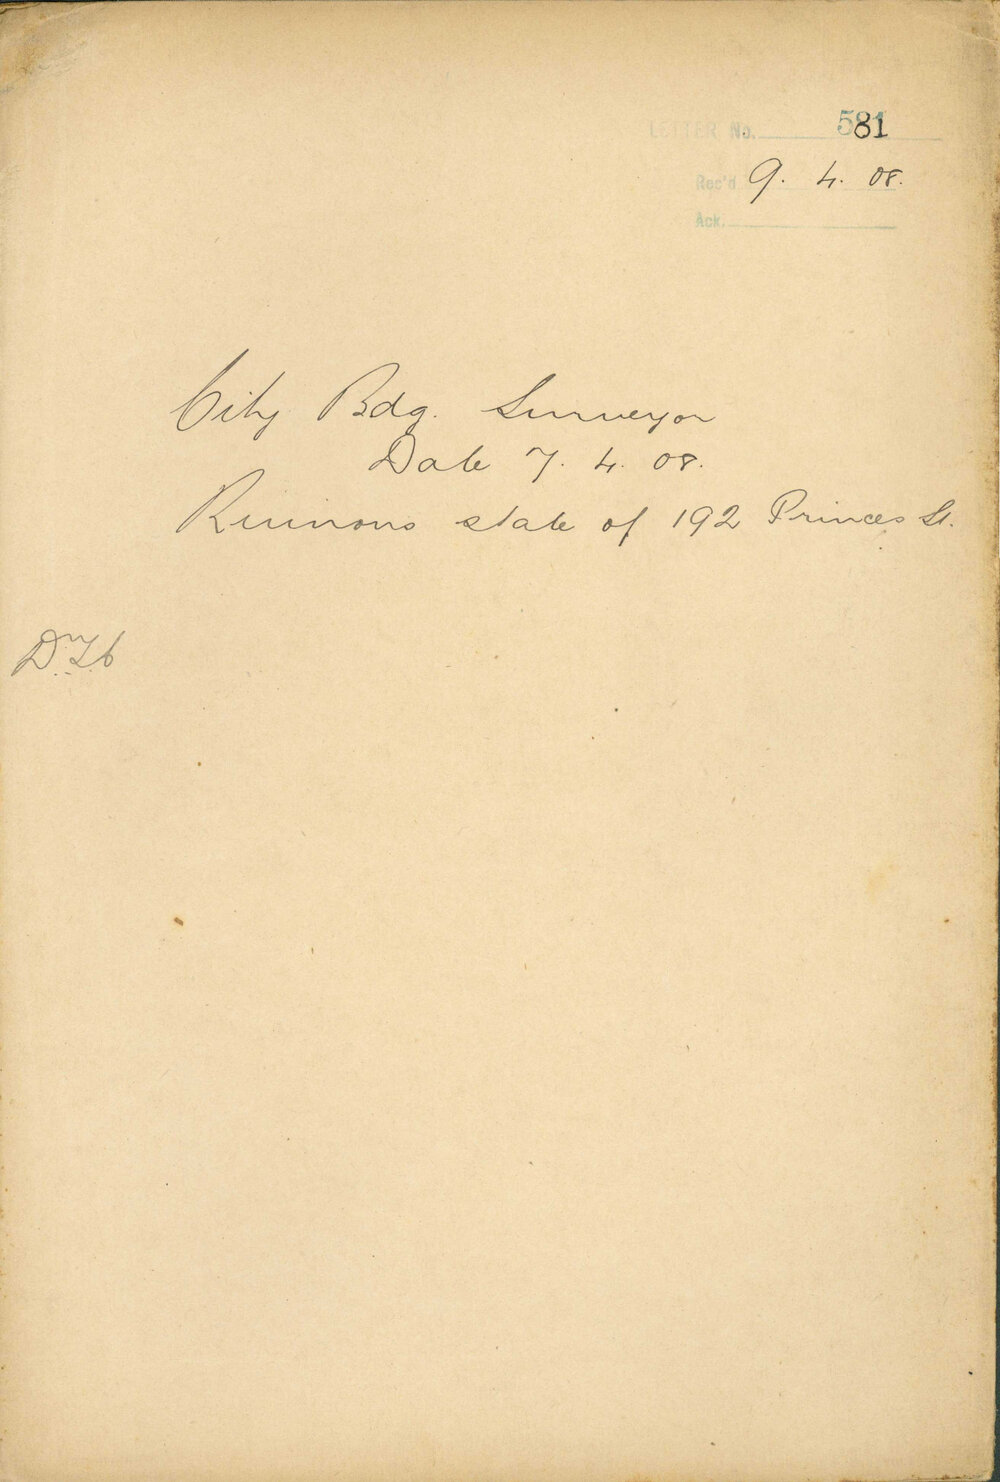 LETTER No. 581
Rec'd 9. 4. 08.
Ack.
City Bdg. Surveyor
Date 7. 4. 08.
Ruinous state of 192 Princes St.